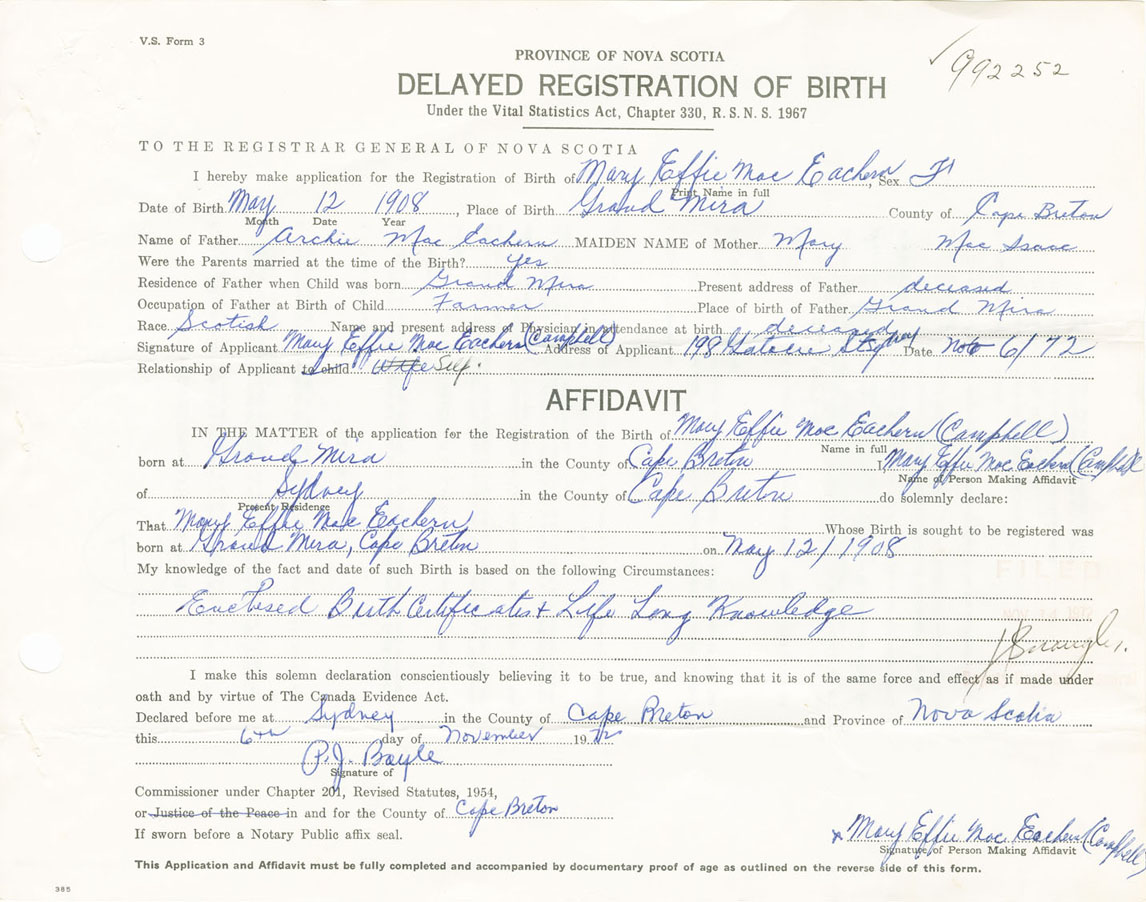 V.S. Form 3
PROVINCE OF NOVA SCOTIA
992252
DELAYED REGISTRATION OF BIRTH
Under the Vital Statistics Act, Chapter 330, R.S.N.S. 1967
TO THE REGISTRAR GENERAL OF NOVA SCOTIA
I hereby make application for the Registration of Birth of Mary Effie Mac Eachern, Sex F
Print Name in full
Date of Birth May 12 1908, Place of Birth Grand Mira County of Cape Breton
Month Date Year
Name of Father Archie Mac Eachern MAIDEN NAME of Mother Mary Mac Isaac
Were the Parents married at the time of the Birth? yes
Residence of Father when Child was born Grand Mira Present address of Father deceased
Occupation of Father at Birth of Child Farmer Place of birth of Father Grand Mira
Race Scotish Name and present address of Physician in attendance at birth deceased
Signature of Applicant Mary Effie Mac Eachern (Campbell) Address of Applicant 198 St Sydney Date Nov 6/72
Relationship of Applicant to child Wife Self.
AFFIDAVIT
IN THE MATTER of the application for the Registration of the Birth of Mary Effie Mac Eachern (Campbell)
Name in full
born at Grand Mira in the County of Cape Breton I Mary Effie Mac Eachern (Campbell
Name of Person Making Affidavit
of Sydney in the County of Cape Breton do solemnly declare:
Present Residence
That Mary Effie Mac Eachern Whose Birth is sought to be registered was
born at Grand Mira, Cape Breton on May 12/1908
My knowledge of the fact and date of such Birth is based on the following Circumstances:
FILED
Enclosed Birth Certificates + Life Long Knowledge
NOV 14 1972
I make this solemn declaration conscientiously believing it to be true, and knowing that it is of the same force and effect as if made under
oath and by virtue of The Canada Evidence Act.
Declared before me at Sydney in the County of Cape Breton and Province of Nova Scotia
this 6th day of November 1972
P.J. Boyle
Signature of
Commissioner under Chapter 201, Revised Statutes, 1954,
or Justice of the Peace in and for the County of Cape Breton
If sworn before a Notary Public affix seal.
x Mary Effie Mac Eachern (Campbell)
Signature of Person Making Affidavit
This Application and Affidavit must be fully completed and accompanied by documentary proof of age as outlined on the reverse side of this form.
385